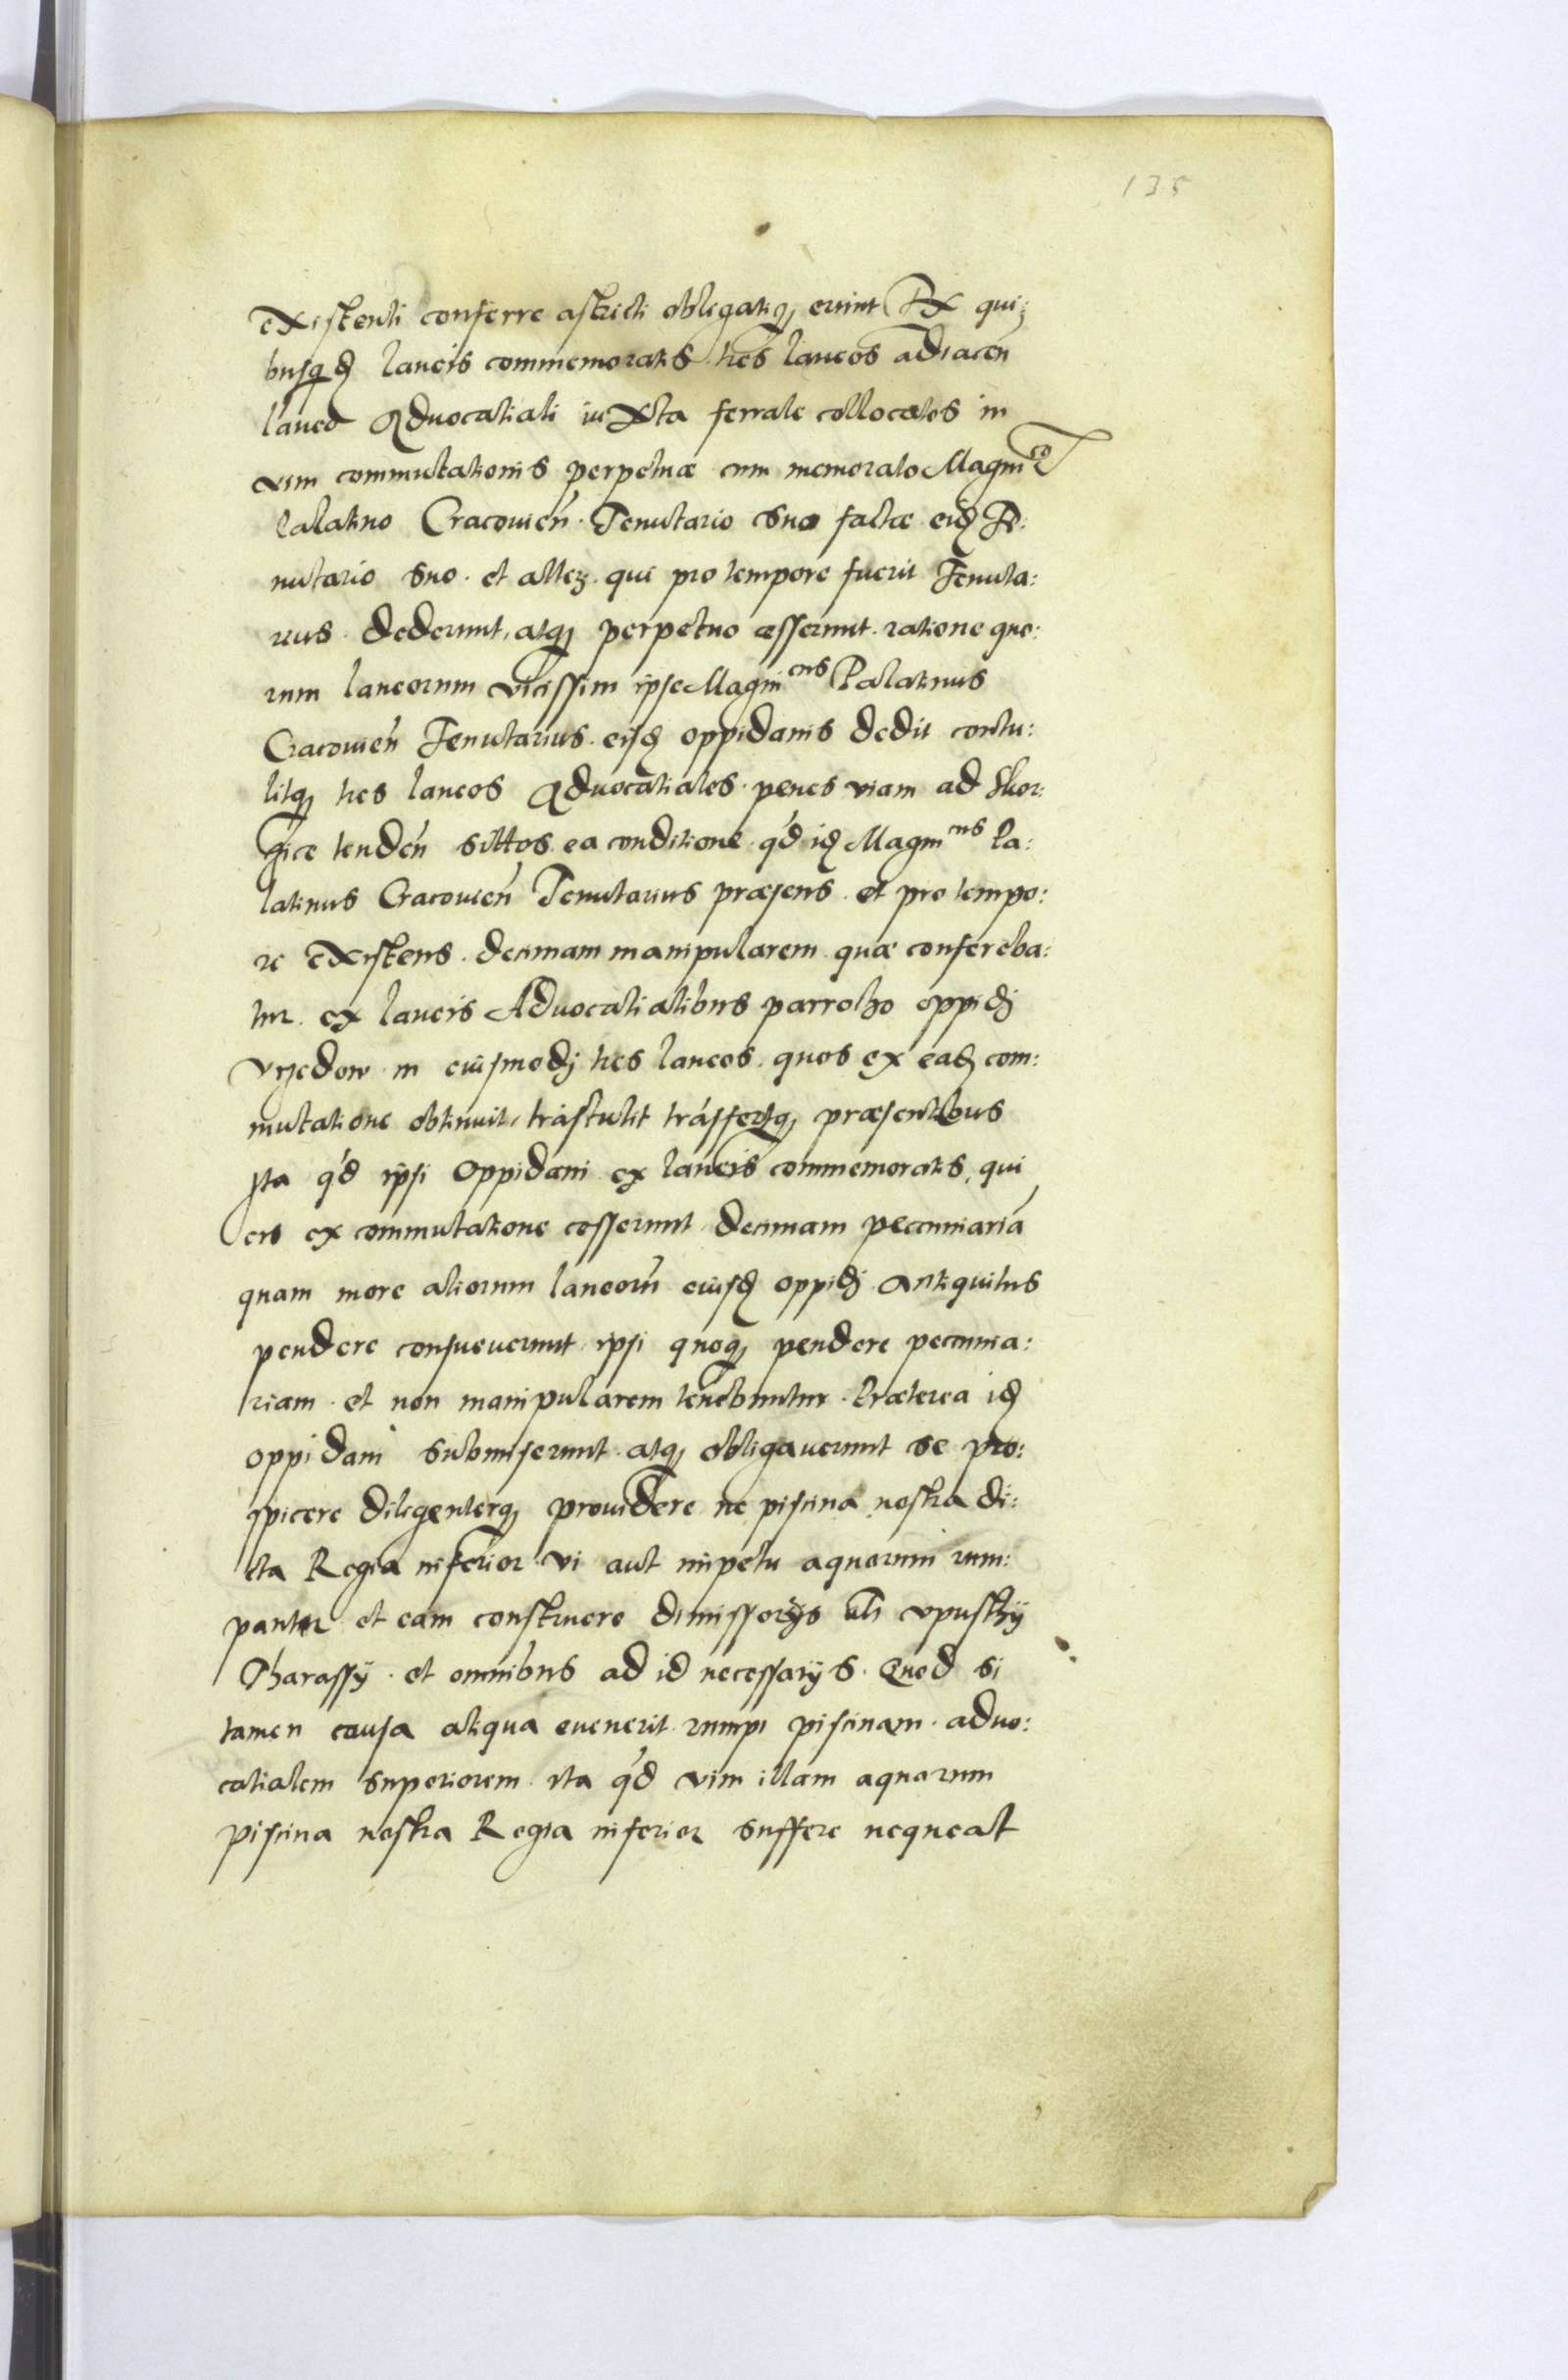 135
existenti conferre astricti obligatiq, erunt Ex qui:
busqd laneis commemoratis tres laneos adiacen
laneo Advocatiali iuxta ferrale collocatos in
vim commutationis perpetuæ cum memorato Magnico
Palatino Cracovien. Tenutario suo factæ eid Te:
nutario suo. et altez. qui pro tempore fuerit Tenuta:
rius. dederunt, atq, perpetuo asserunt. ratione quo:
rum laneorum vicissim ipse Magnicus Palatinus
Cracovien Tenutarius. eisd oppidanis dedit contu:
litq, tres laneos Advocatiales. penes viam ad Skor:
gice tenden sittos ea conditione. qd id Magnicus Pa:
latinus Cracovien Tenutarius præsens. et pro tempo:
re existens. decimam manipularem quæ confereba:
tur. ex laneis Advocatialibus parrocho oppidj
Vrzedow in eiusmodj tres laneos. quos ex ead com:
mutatione obtinuit, trastulit trasfertq, præsentibus
Ita qd ipsi oppidani ex laneis commemoratis, qui
eis ex commutatione cesserunt decimam pecuniaria
quam more aliorum laneoru eiusd oppidj antiquitus
pendere consueverunt ipsi quoq, pendere pecunia:
riam. et non manipularem tenebuntur. Præterea id
oppidani submiserunt. atq, obligaverunt se pro:
spicere diligenterq, providere ne piscina nostra di:
cta Regia inferior vi aut impetu aquarum rum:
pantur et eam construere dimissorijs als vpusthy
Tharassy. et omnibus ad id necessarijs. Quod si
tamen causa aliqua evenerit rumpi piscinam. advo:
catialem superiorem ita qd vim illam aquarum
piscina nostra Regia inferior suffere nequeat